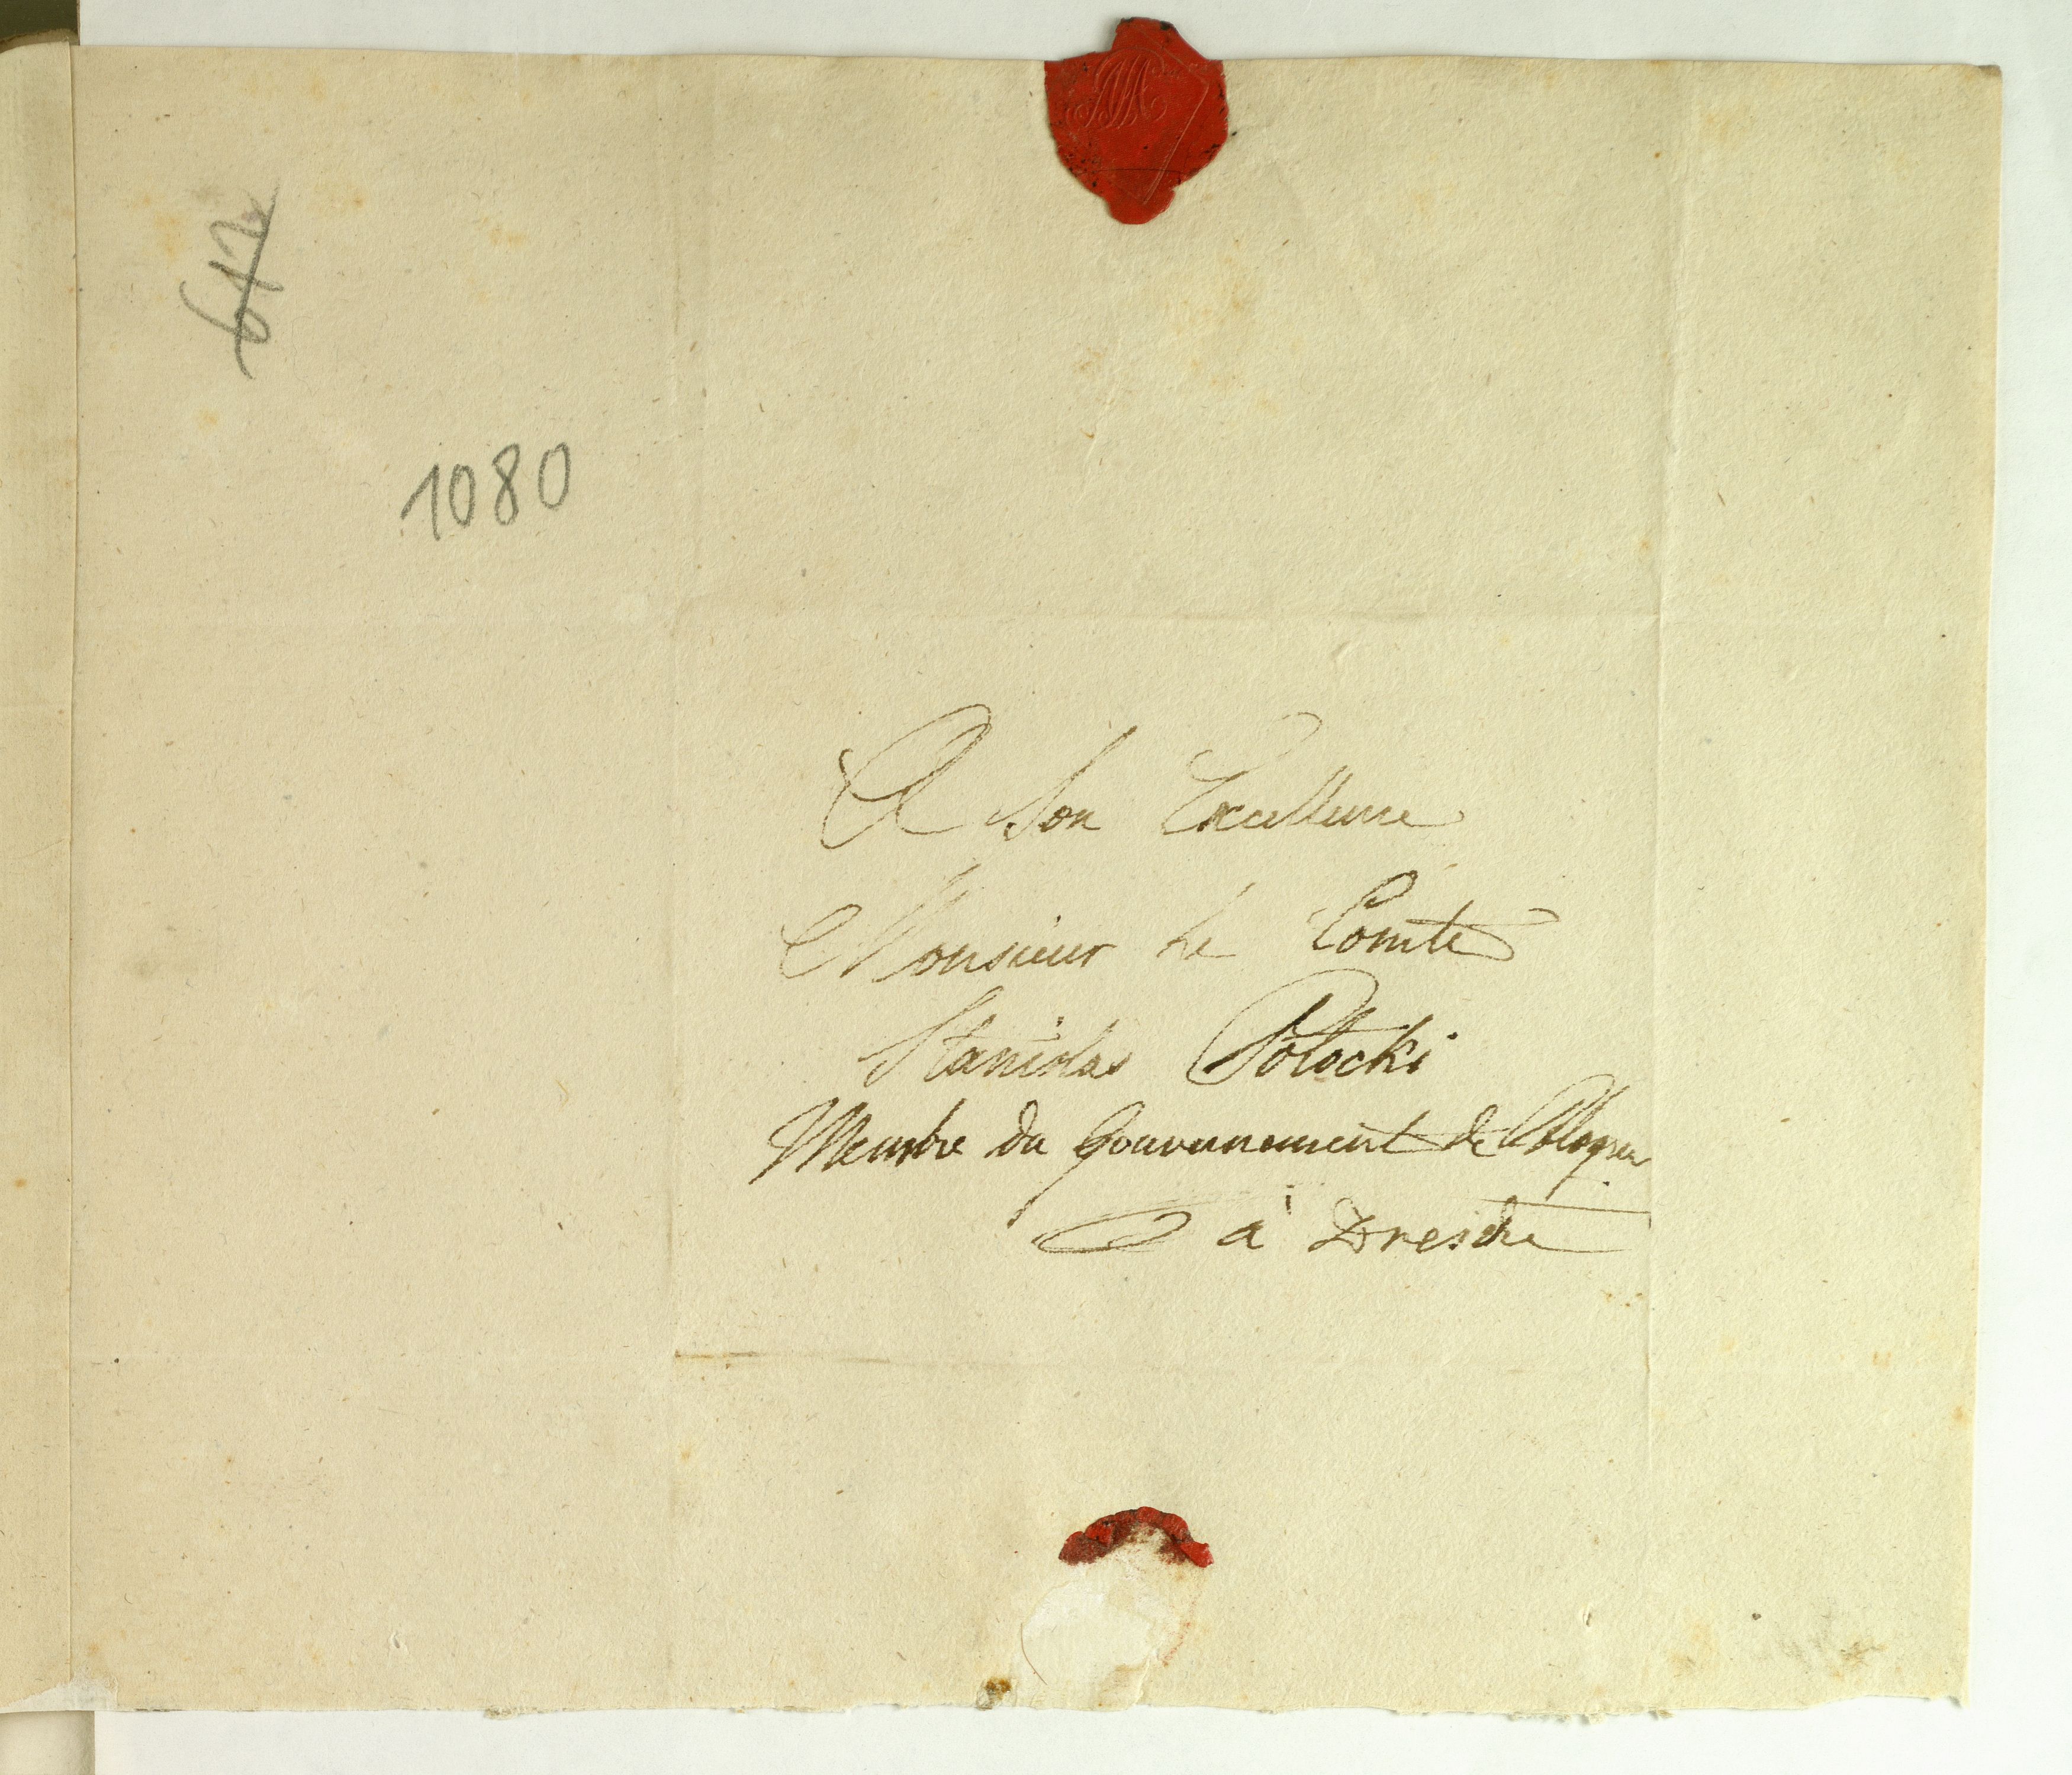 612
1080
A Son Excellence
Monsieur le Comte
Stanislas Potocki
Membre du Gouvernement de Pologne
à Dresde